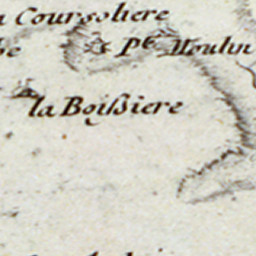 Coursoliere
Pte. Moulin
la Boissiere